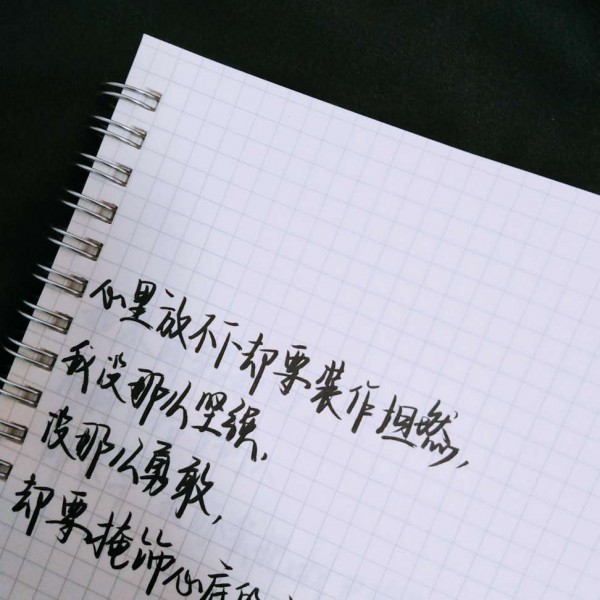 心里放不下却要装作坦然,
我没那么坚强.
没那么勇敢,
却要掩饰心底的